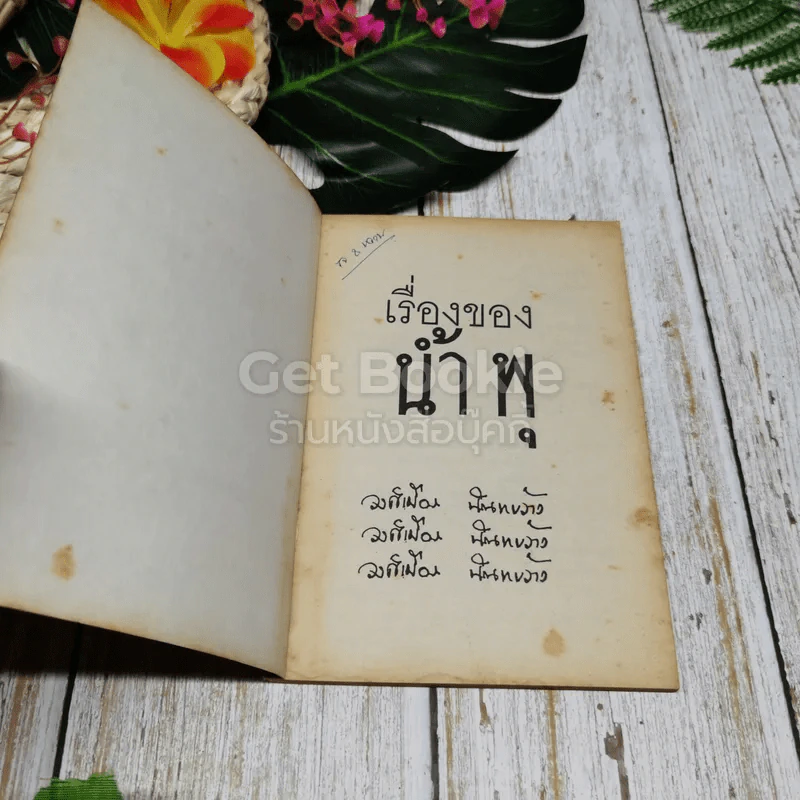 เรื่องของ
น้ำพุ
Get Bookie
ร้านหนังสือบุ๊คกี้
วงศ์เมือง นันทขว้าง
วงศ์เมือง นันทขว้าง
วงศ์เมือง นันทขว้าง